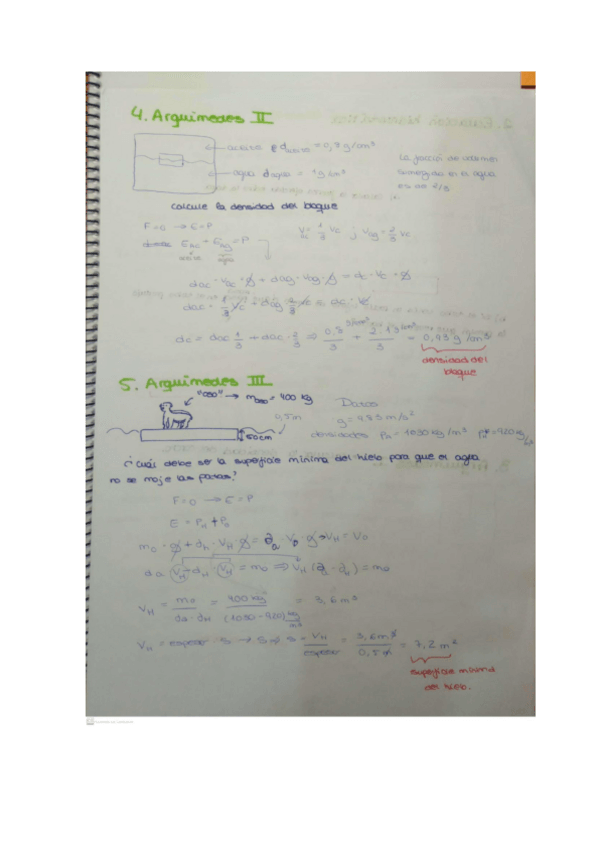 4. Arquímedes II
aceite daceite = 0,8 g/cm³
agua dagua = 1 g/cm³
La fracción de volumen
sumergida en el agua
es de 2/3
calcule la densidad del bloque
F=0 → E=P
Eac + Eag = P
aceite agua
Vac = 1/3 Vc ; Vag = 2/3 Vc
dac · Vac · g + dag · Vag · g = dc · Vc · g
dac · 1/3 Vc + dag 2/3 Vc = dc · Vc
dc = dac 1/3 + dag · 2/3 ⇒ 0,8 g/cm³ / 3 + 2 · 1 g/cm³ / 3 = 0,93 g/cm³
densidad del
bloque
5. Arquímedes III
"oso" → moso = 400 kg
0,5m
50cm
Datos
g = 9,83 m/s²
densidades ρA = 1030 kg/m³ ρH = 920 kg/m³
¿cuál debe ser la superficie mínima del hielo para que el agua
no se moje las patas?
F=0 → E=P
E = PH + Po
mo · g + dh · VH · g = da · VD · g → VH = VD
da VH - dH · VH = mo ⇒ VH (da - dH) = mo
VH = mo / da - dH = 400 kg / (1030 - 920) kg/m³ = 3,6 m³
VH = espesor · S → S = VH / espesor = 3,6 m³ / 0,5 m = 7,2 m²
superficie mínima
del hielo.